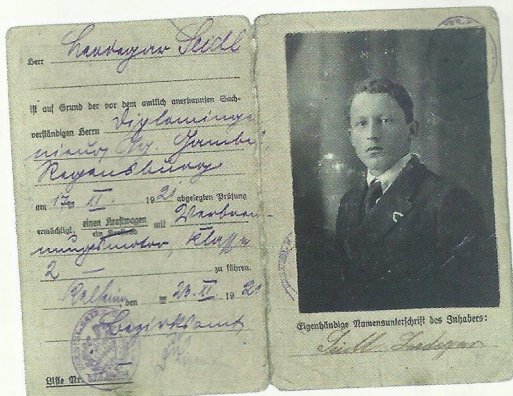 Herr Leodegar Seidl
ist auf Grund der vor dem amtlich anerkannten Sach-
verständigen Herrn Diplominge-
nieur
Regensburg
am 17. XI. 1921 abgelegten Prüfung
ermächtigt, einen Kraftwagen mit Verbren-
ein Kraftrad
nungsmotor, Klasse
2 — zu führen.
Kelheim, den 23. XI. 1921
Bezirksamt
Liste Nr.
Eigenhändige Namensunterschrift des Inhabers:
Seidl Leodegar